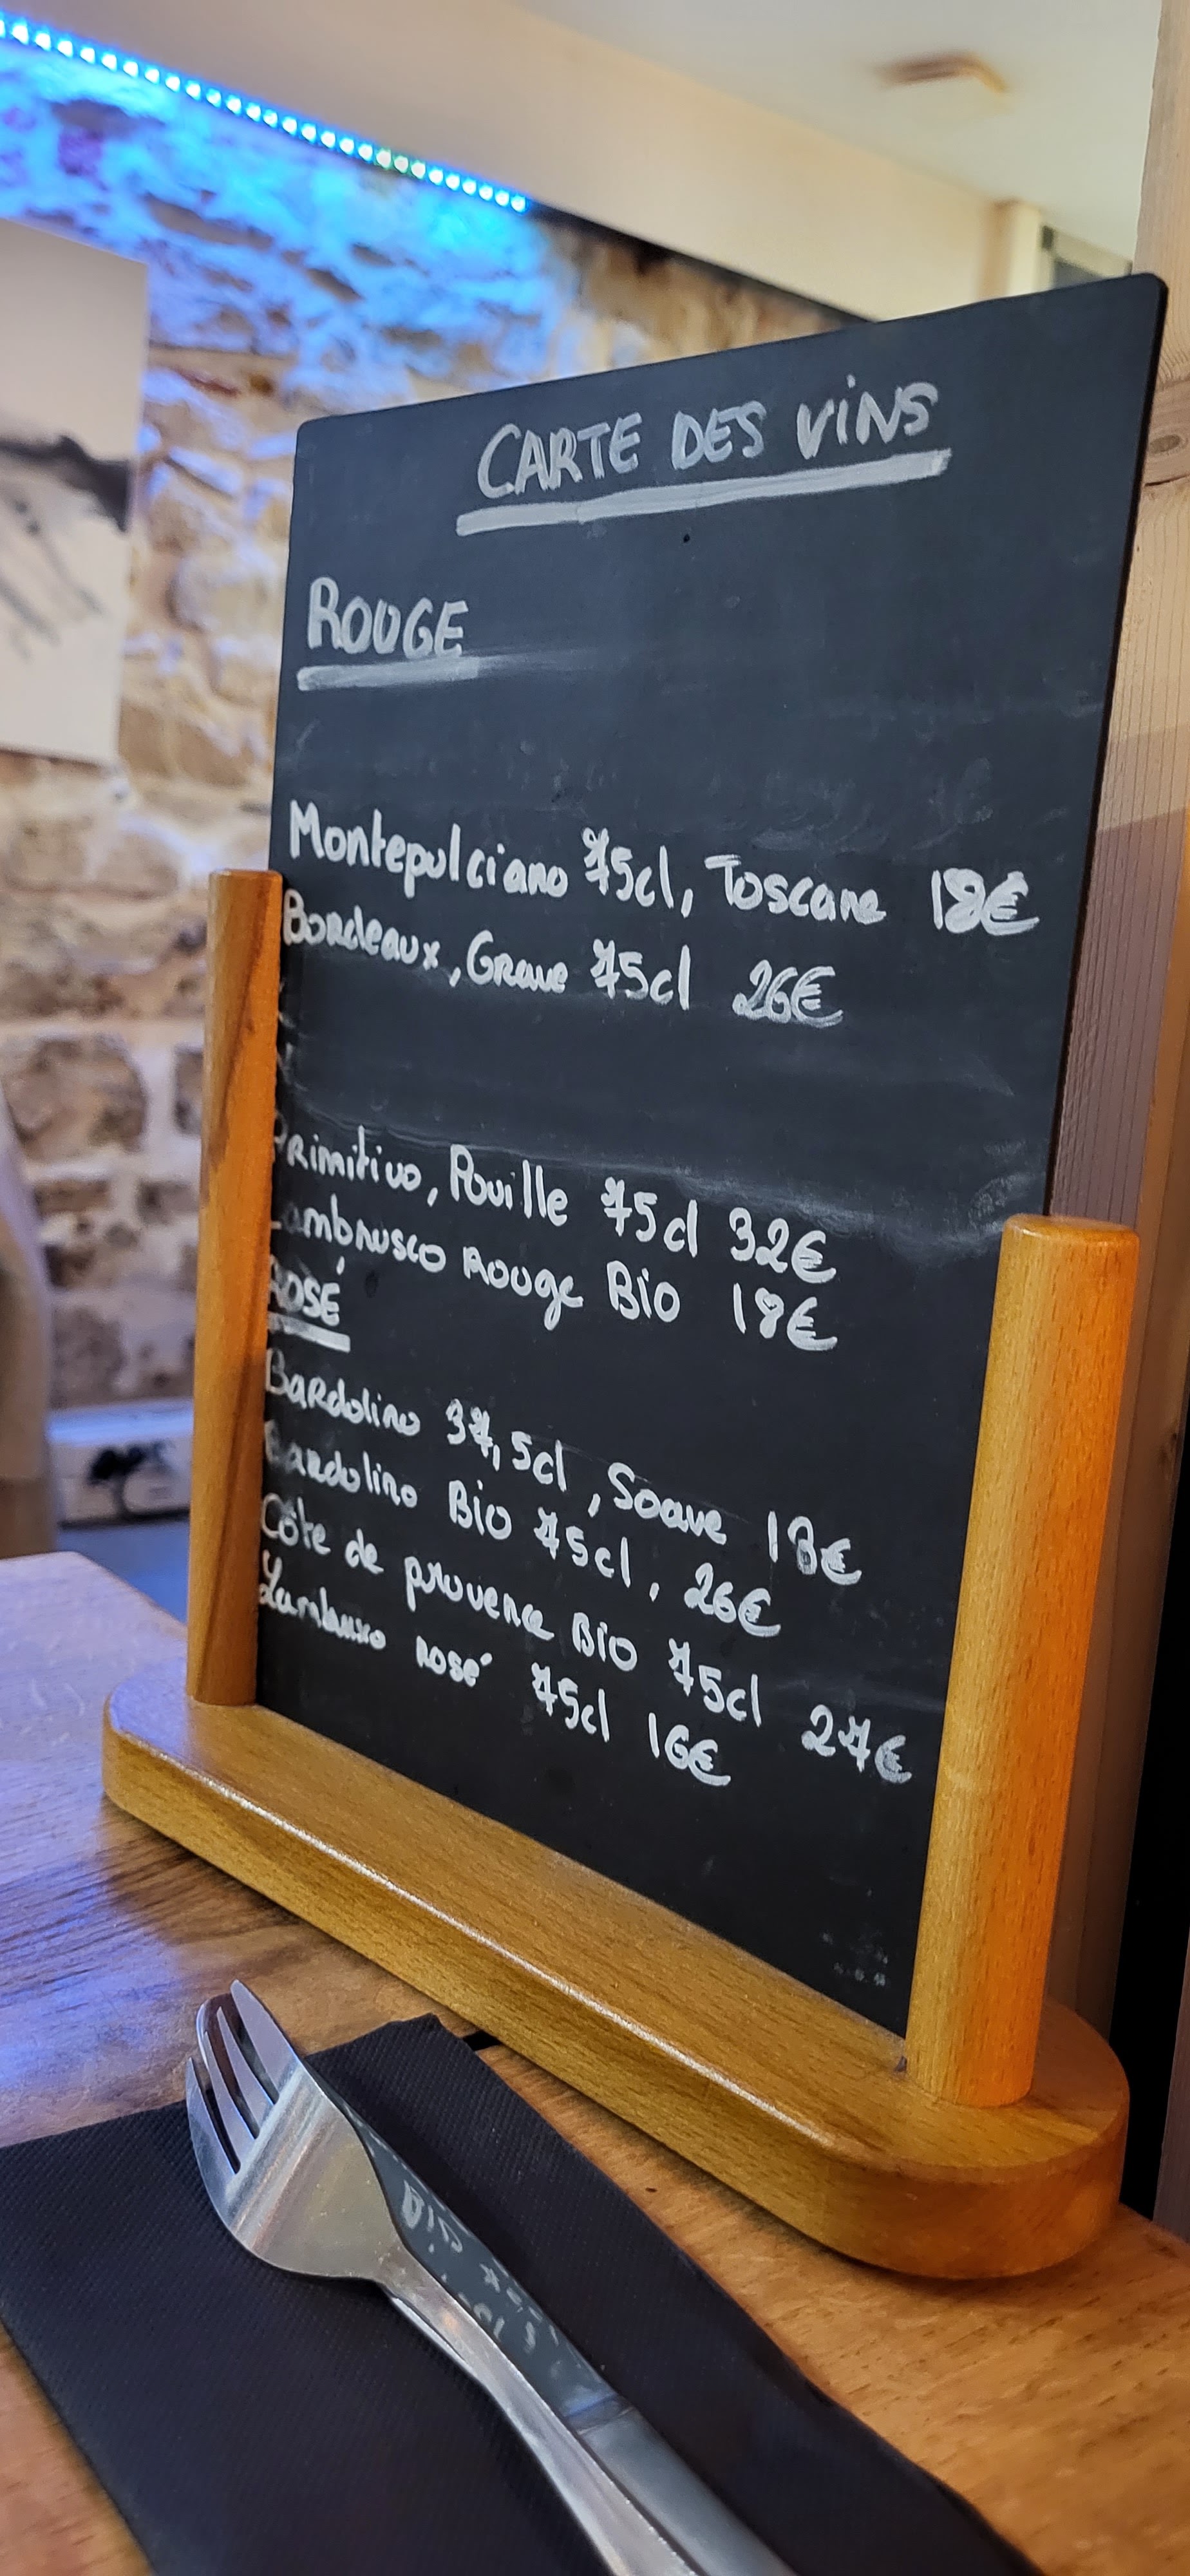 CARTE DES ViNS
ROUGE
Montepulciano 75cl, Toscane 18€
Bordeaux, Grave 75cl 26€
Primitivo, Pouille 75cl 32€
Lambrusco Rouge Bio 18€
ROSÉ
Bardolino 37,5cl, Soave 18€
Bardolino Bio 75cl, 26€
Côte de provence Bio 75cl 27€
Lambrusco Rosé 75cl 16€